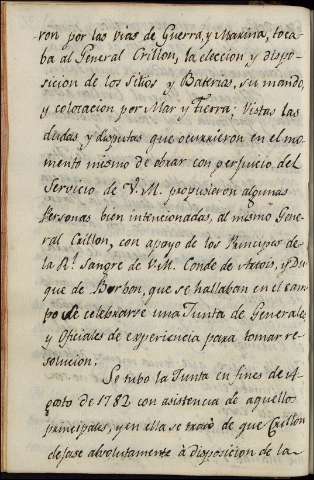 ron por las vias de Guerra, y Marina, toca-
ba al General Crillon, la eleccion y dispo-
sicion de los Sitios y Baterias, su mando,
y colocacion por Mar y Tierra; Vistas las
dudas y disputas que ocurrieron en el mo-
mento mismo de obrar con perjuicio del
Servicio de V. M. propusieron algunas
Personas bien intencionadas, al mismo Gene-
ral Crillon, con apoyo de los Principes de
la Rl. Sangre de V. M. Conde de Artois, y Du-
que de Borbon, que se hallaban en el cam-
po de celebrarse una Junta de Generales
y Oficiales de experiencia para tomar re-
solucion.
Se tubo la Junta en fines de A-
gosto de 1782 con asistencia de aquellos
principales, y en ella se trató de que Crillon
dejase absolutamente à disposicion de la